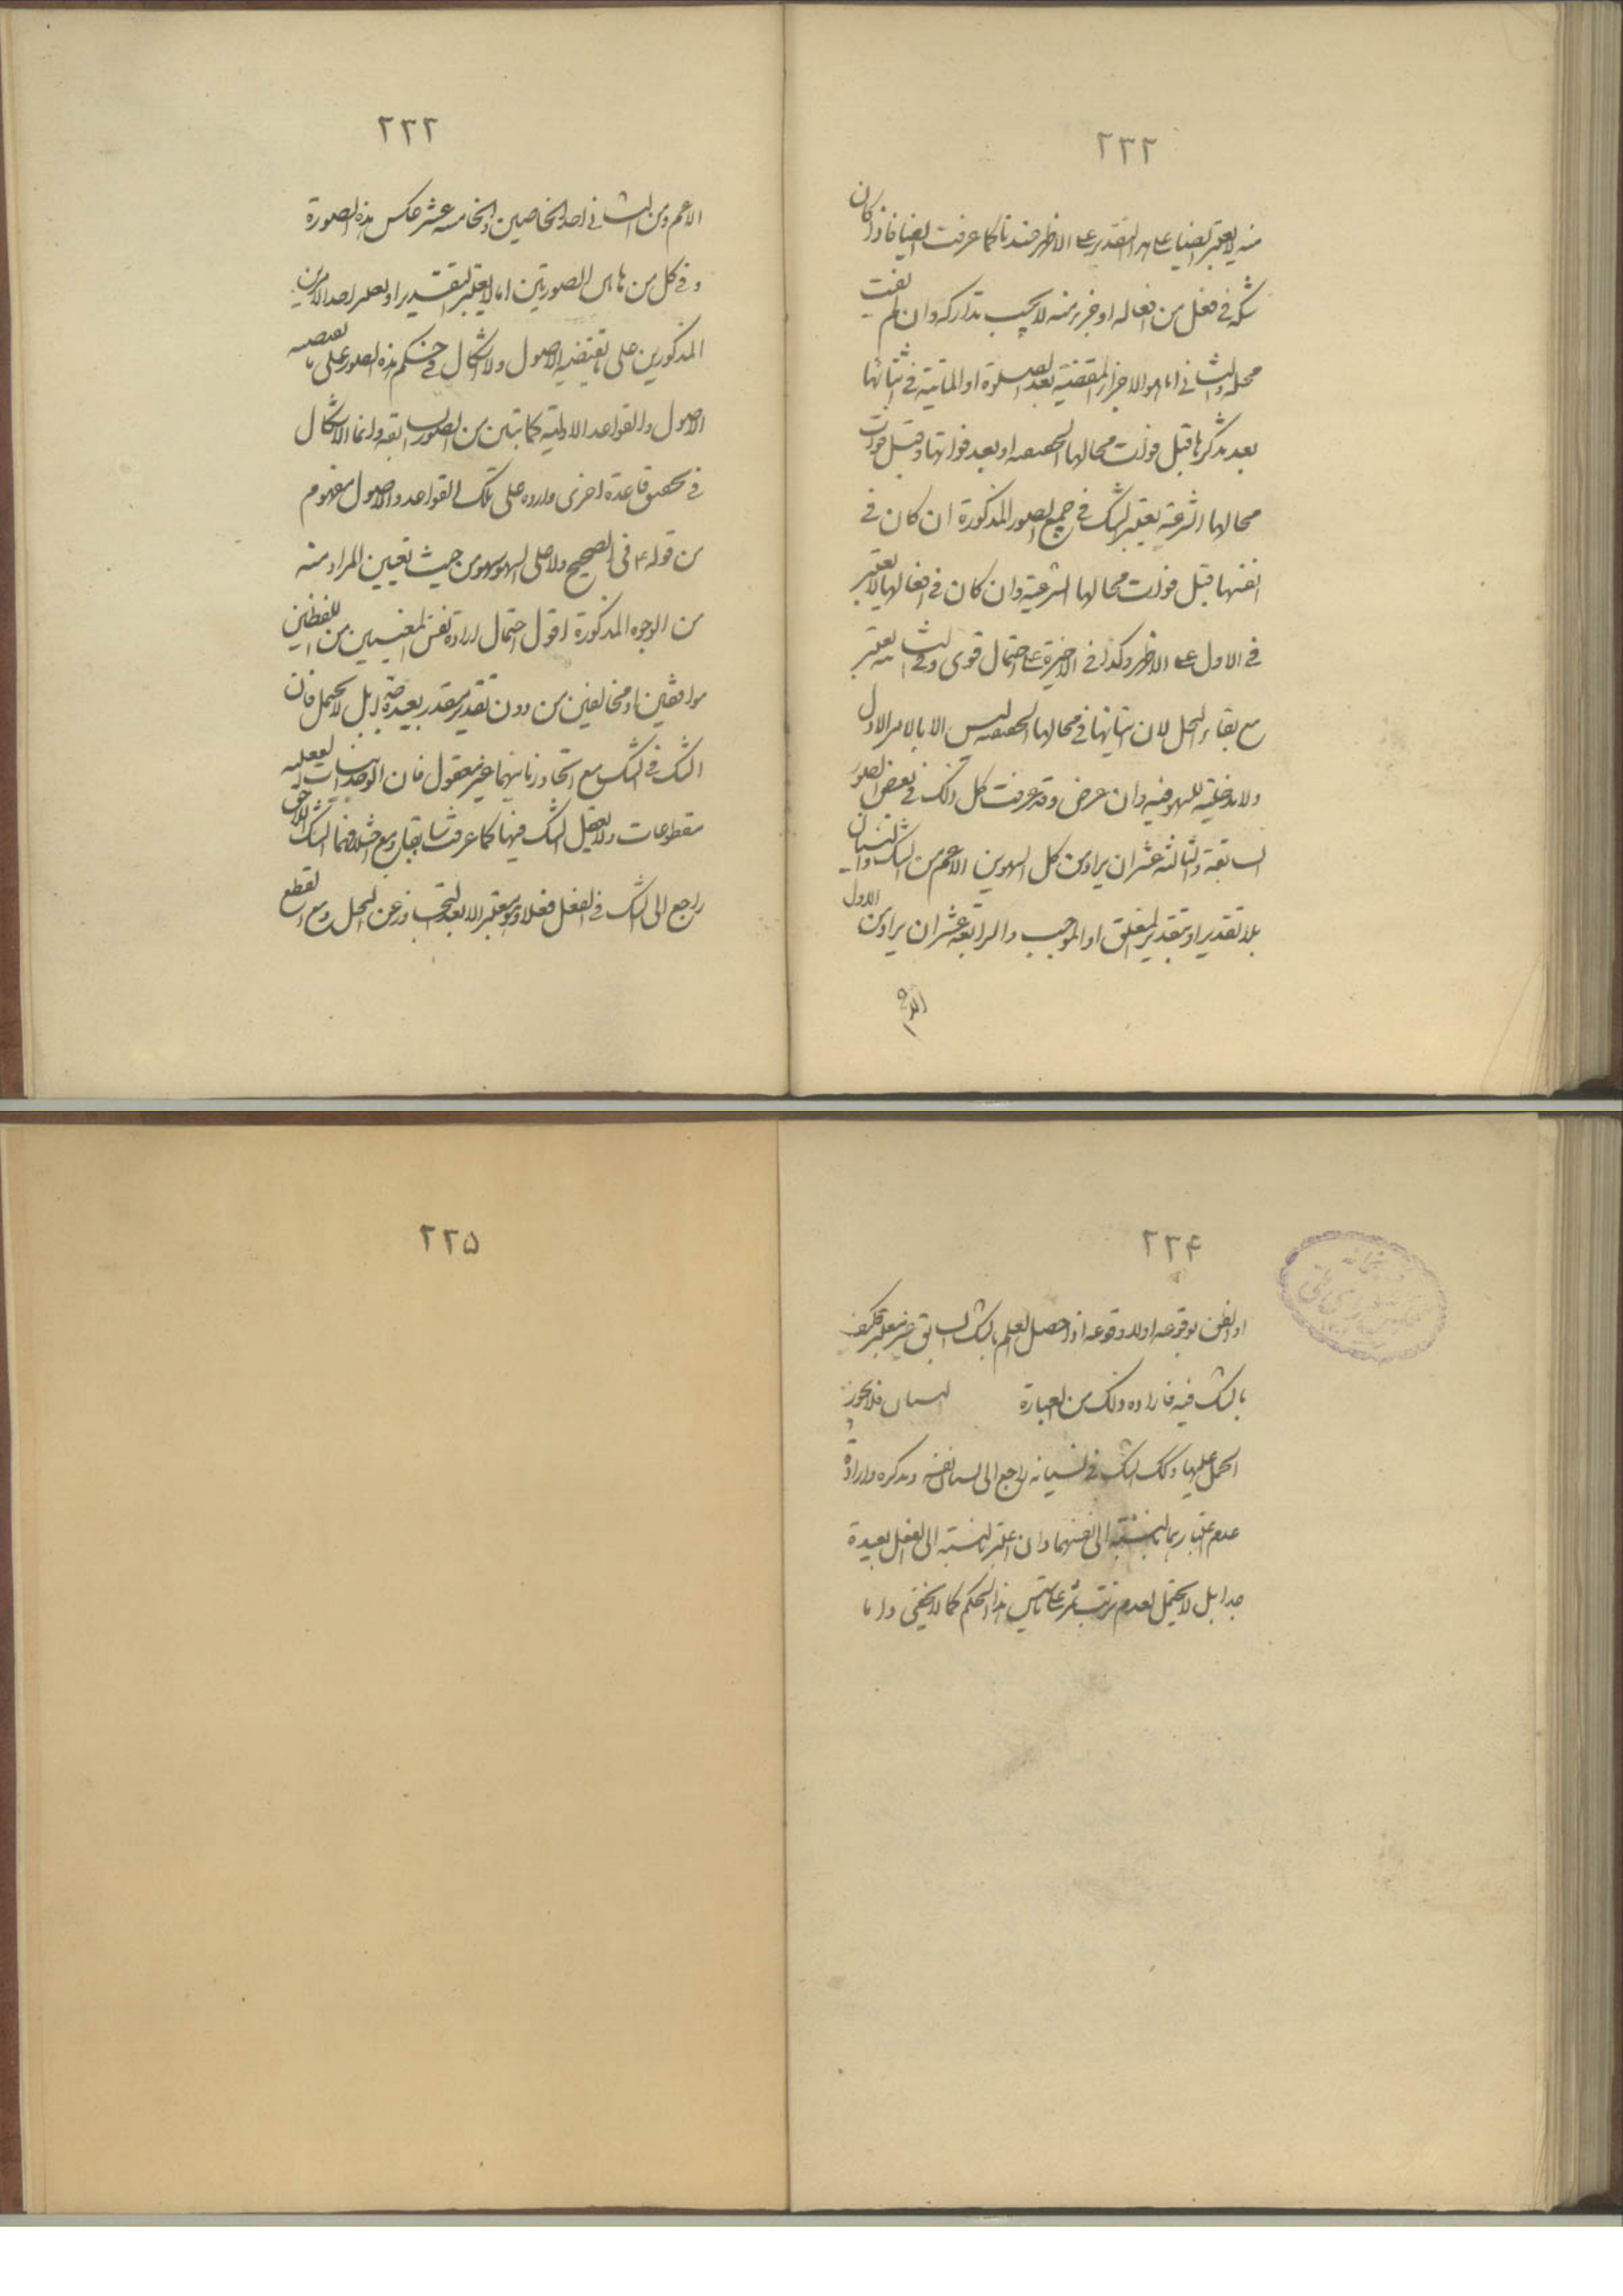 ٢٣٢
منه لا يعتبر ايضا على هذا التقدير على الاظهر عندنا كما عرفت ايضا فاذا كان
شكه في فعل من افعاله او جزء منه لا يجب تداركه وان لم يفت
محله والثاني اما هو الاجزاء المقضية بعد الصلوة او الماتية في اثنائها
بعد تذكرها قبل فوات محالها الحقيقية او بعد فواتها وقبل فوات
محالها الشرعية يعتبر الشك في جميع الصور المذكورة ان كان في
انفسها قبل فوات محالها الشرعية وان كان في افعالها لا يعتبر
في الاول على الاظهر وكذا في الاخيرة على احتمال قوى وفي الثانية يعتبر
مع بقاء المحل لان اتيانها في محالها الحقيقية ليس الا بالامر الاول
ولا مدخلية للسهو فيه وان عرض وقد عرفت كل ذلك في بعض الصور
السابقة والثالثة عشر ان يراد من كل السهوين الاعم من الشك والنسيان
بلا تقدير او بتقدير المتعلق او الموجب والرابعة عشر ان يراد من الاول
٢٣٣
الاعم ومن الثاني احد الخاصين والخامسة عشر عكس هذه الصورة
وفي كل من هاتين الصورتين اما لا يعتبر التقدير او يعتبر احد الامرين
المذكورين على ما يقتضيه الاصول ولا اشكال في حكم هذه الصور على ما يقتضيه
الاصول والقواعد الاولية كما تبين من الصور السابقة وانما الاشكال
في تحقيق قاعدة اخرى واردة على تلك القواعد والاصول مفهوم
من قوله ع في الصحيح ولا على السهو سهو من حيث تعيين المراد منه
من الوجوه المذكورة اقول احتمال ارادة نفس المعنيين من اللفظين
موافقين او مخالفين من دون تقدير مقدر بعيدة جدا بل لا يحتمل فان
الشك في الشك مع اتحاد زمانيهما غير معقول فان الوجدانيات الفعلية
مقطوعات ولا يعقل الشك فيها كما عرفت سابقا ومع اختلافهما الشك اللاحق
راجع الى الشك في الفعل فعلا وهو معتبر الا بعد التجاوز عن المحل ومع القطع
٢٣۴
او الظن بوقوعه او لا وقوعه اذا حصل العلم بالشك السابق غير معتبر فكيف
بالشك فيه فارادة ذلك من العبارة النسيان فلا يجوز
الحمل عليها وكك الشك في نسيانه راجع الى نفسه وتذكره وارادة
عدم اعتبارهما بالنسبة الى انفسهما وان اعتبر بالنسبة الى الفعل بعيدة
جدا بل لا يحتمل لعدم ترتب ثمر على تاسيس هذا الحكم كما لا يخفى واما
٢٣۵